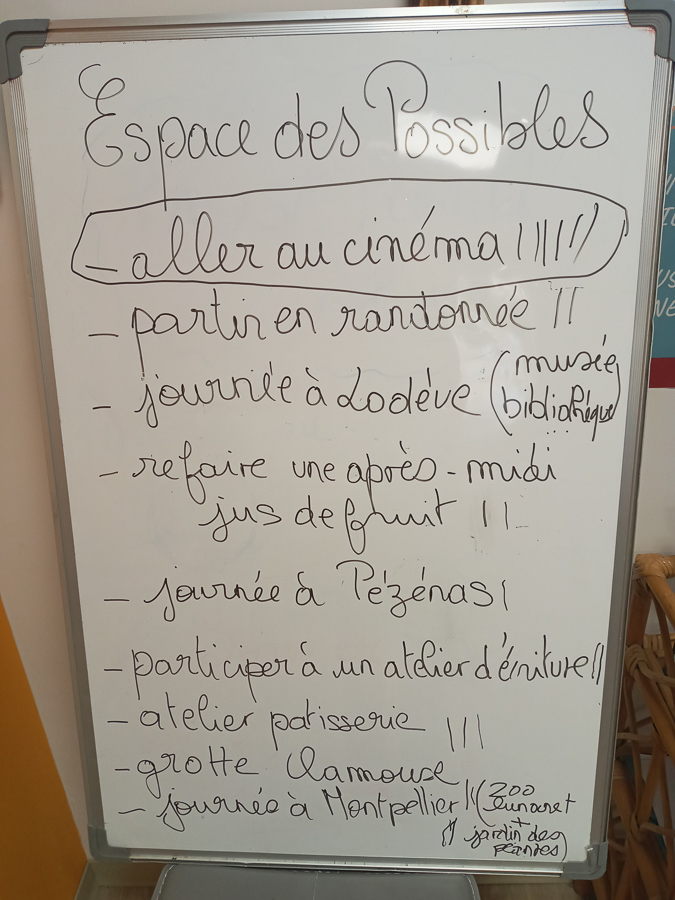 Espace des Possibles
- aller au cinéma ||||||
- partir en randonnée ||
- journée à Lodéve (musée
bibliothèque)
- refaire une après-midi
jus de fruit ||
- journée à Pézénas |
- participer à un atelier d'écriture ||
- atelier patisserie |||
- grotte Clamouse
- journée à Montpellier || (zoo
Lunaret
+
|| jardin des
plantes)